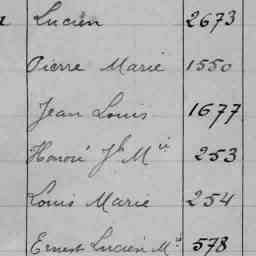 Lucien 2673
Pierre Marie 1550
Jean Louis 1677
Honoré Jh Mie 253
Louis Marie 254
Ernest Lucien Me 578